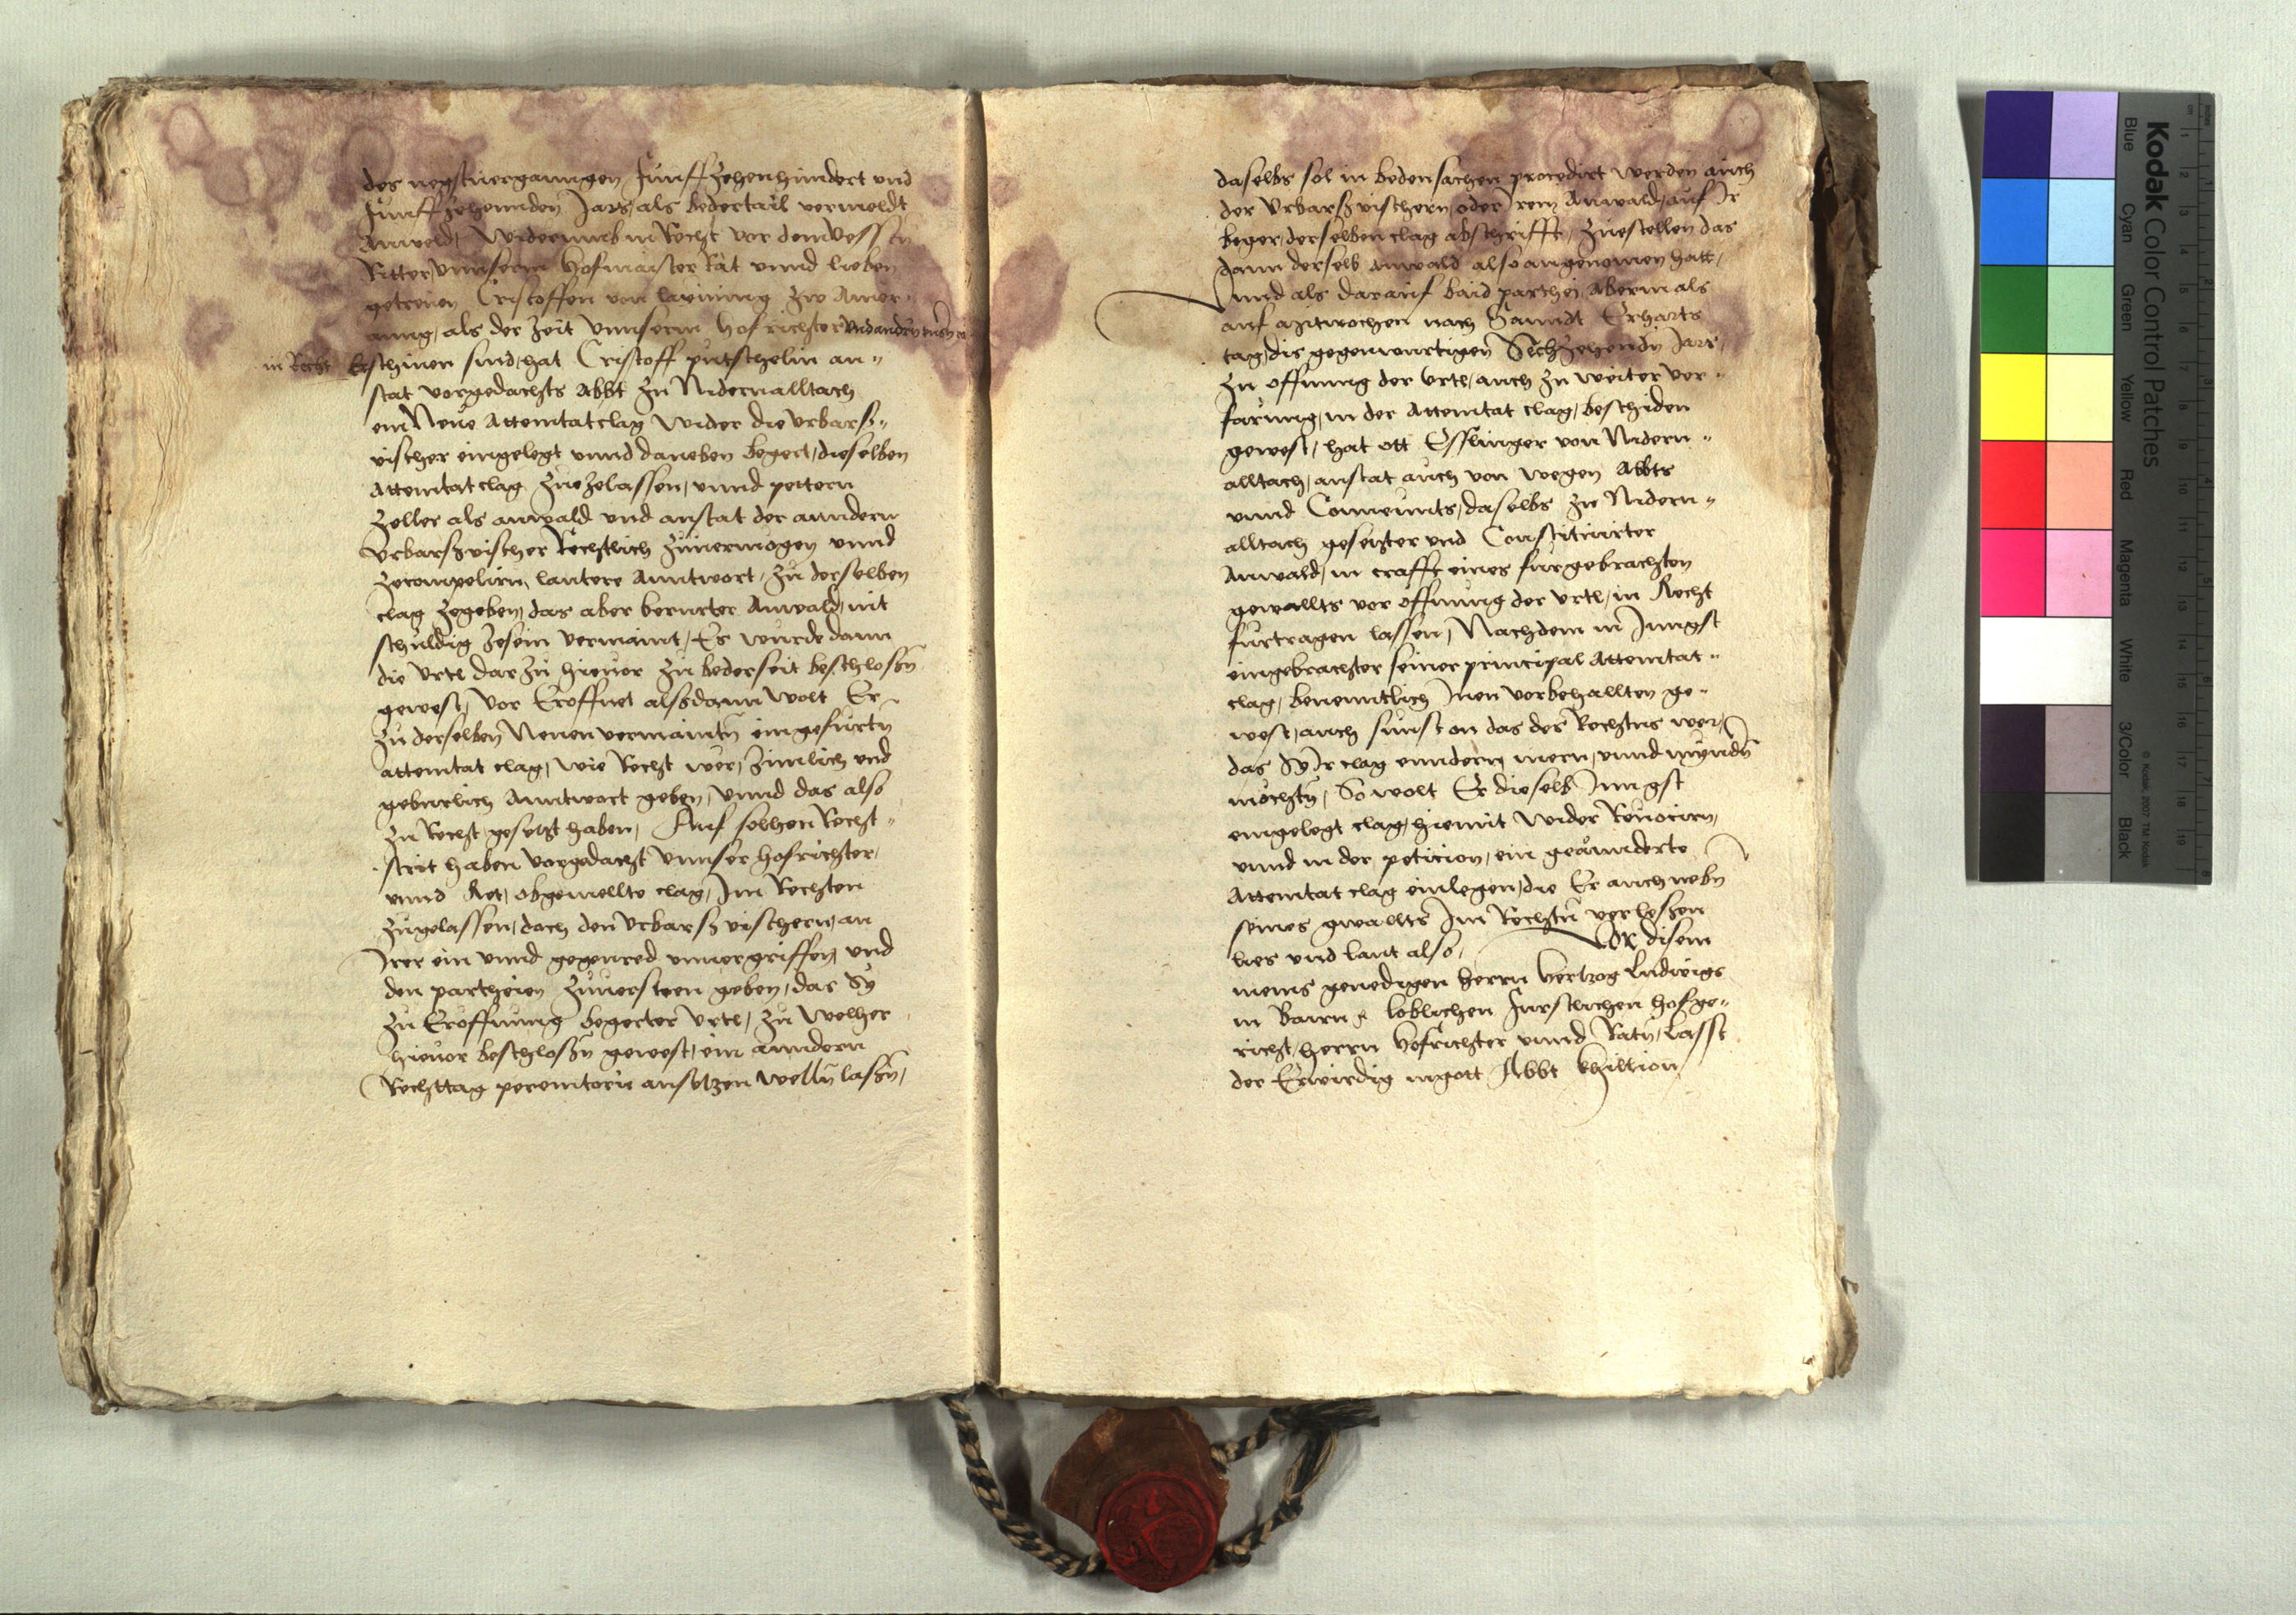 des negstuergangen Funffzehenhundert vnd
Funffzehennden Jars, als bedertail vermeldt
Anweld, widerumb in Recht vor dem Vesstn
Ritter vnnserm Hofmaister Rat vnnd lieben
getreuen Cristoffen von Layming zw Amer-
anng, als der Zeit vnnserm Hofrichter vnd andern
in Recht Erschinen sind, hat Cristoff putschelin an„
stat vorgedachts Abbt zu Nidernalltach
ein Neue Attemtat clag wider die Vrbarß„
vischer eingelegt vnnd daneben begert, dieselben
Attemtat clag zuezelassen, vnnd pettern
Zeller als anwald vnd anstat der anndern
Vrbarßvischer Rechtlich zuuermögen vnnd
zecompelirn, lautere Anntwort, zu derselben
clag zegeben, das aber berurter Anwald, nit
schuldig zesein vermaint, Es wurde dann
die Vrtl darzu hieuor zu bederseit beschlossn
gewest, vor Eröffnet alßdann wolt Er
zu derselben Neuen vermaintn eingefurtn
attemtat clag, wie Recht wer, zimlich vnd
geburlich Anntwort geben, vnnd das also
zu Recht gesetzt haben, Auf solhen Recht„
strit haben vorgedacht vnnser hofrichter,
vnnd Ret, obgemellte clag, Im Rechten
zugelassen, doch den Vrbarß vischern, an
Irer ein vnnd gegenred vnuergriffen, vnd
den partheien zuuersteen geben, das Sy
zu Eröffnung begerter Vrtl, zu welher
hieuor beschlossn gewest, ein anndern
Rechttag peremtorie ansetzen welln lassn,
daselbs sol in bedensachen procedirt werden auch
der Vrbarßvischern, oder Irem Anwald, auf Ir
beger, derselben clag abschrifft, zuestellen das
dann derselb Anwald also angenomen hatt,
Vnnd als darauf baid parthei, Abermals
auf Mitwochen nach Sanndt Erharts
tag, dis gegenwurtigen Sechzehendn Jars,
zu offnung der Vrtl, auch zu weiter ver„
farung, in der Attemtat clag, beschiden
gewest, hat ott Esslinger von Nidern„
alltach, anstat auch von wegen Abbts
vnnd Conuennts, daselbs zu Nidern„
alltach gesetzter vnd Constituirter
Anwald, in crafft eines furgebrachten
gewallts vor offnung der Vrtl, in Recht
furtragen lassen, Nachdem in Jungst
eingebrachter seiner principal Attemtat„
clag, benenntlich Inen vorbehallten ge„
west, auch sunst on das des Rechtns wer,
das Sy Ir clag enndern, mern, vnnd myndn
möchtn, So wolt Er dieselb Jungst
eingelegt clag, hiemit wider Reuocirn,
vnnd in der, peticion, ein geännderte
Attemtat clag einlegen, die Er auch nebn
seines gwallts Im Rechtn verlessen
lies vnd laut also, VOR disem
meins genedigen herrn Hertzog Ludwigs
in Bairn &c loblichen Furstlichen hofge„
richt, herrn Hofrichter vnnd Ratn, Lasst
der Erwirdig ingott Abbt Khillion